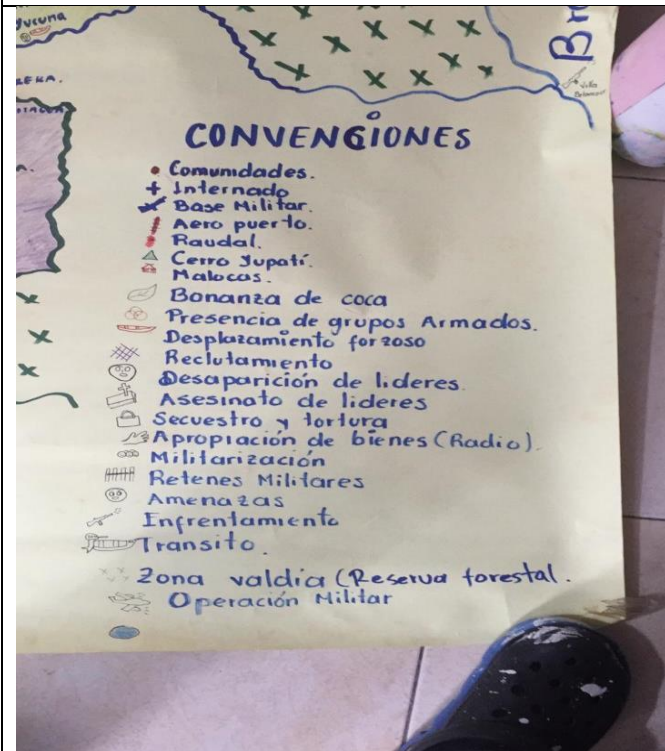 Yucuna
Br
Villa
Betancourt
CONVENGIONES
Comunidades.
Internado
Base Militar.
Aero puerto.
Raudal.
Cerro Yupatí.
Malocas.
Bonanza de coca
Presencia de grupos Armados.
Desplazamiento forzoso
Reclutamiento
Desaparición de lideres.
Asesinato de lideres
Secuestro y tortura
Apropiación de bienes (Radio).
Militarización
Retenes Militares
Amenazas
Enfrentamiento
Transito.
Zona valdía (Reserva forestal.
Operación Militar